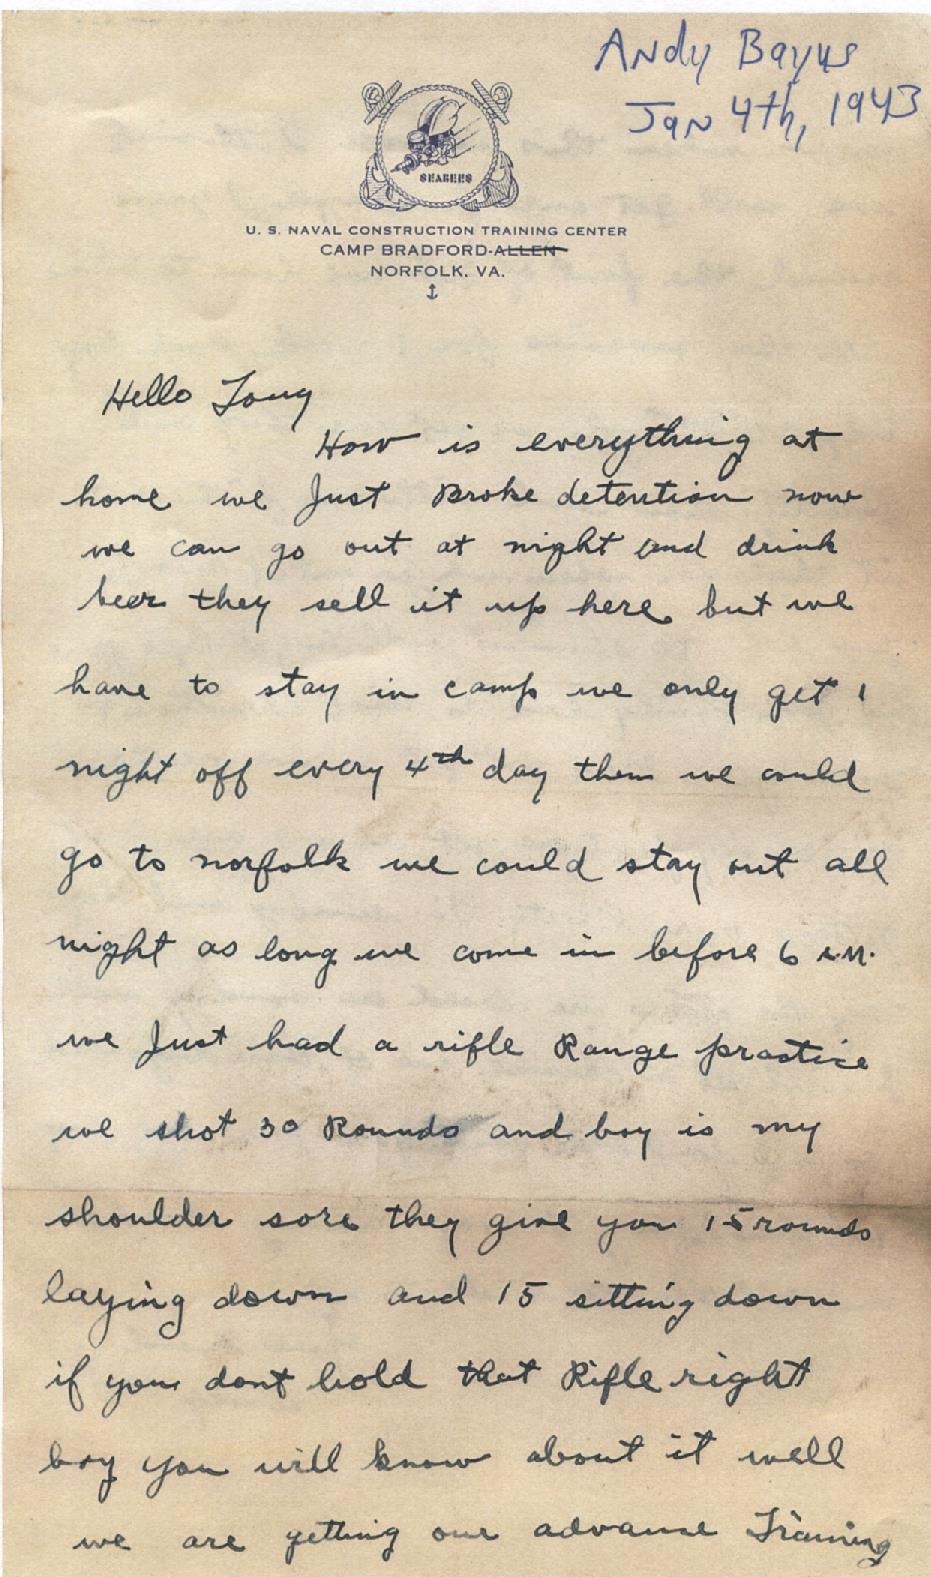 Andy Bayus
Jan 4th, 1943
SEABEES
U. S. NAVAL CONSTRUCTION TRAINING CENTER
CAMP BRADFORD-ALLEN
NORFOLK, VA.
Hello Tony
How is everything at
home we Just Broke detention now
we can go out at night and drink
beer they sell it up here but we
have to stay in camp we only get 1
night off every 4th day then we could
go to norfolk we could stay out all
night as long we come in before 6 A.M.
we Just had a rifle Range practice
we shot 30 Rounds and boy is my
shoulder sore they give you 15 rounds
laying down and 15 sitting down
if you dont hold that Rifle right
boy you will know about it well
we are getting our advance Training